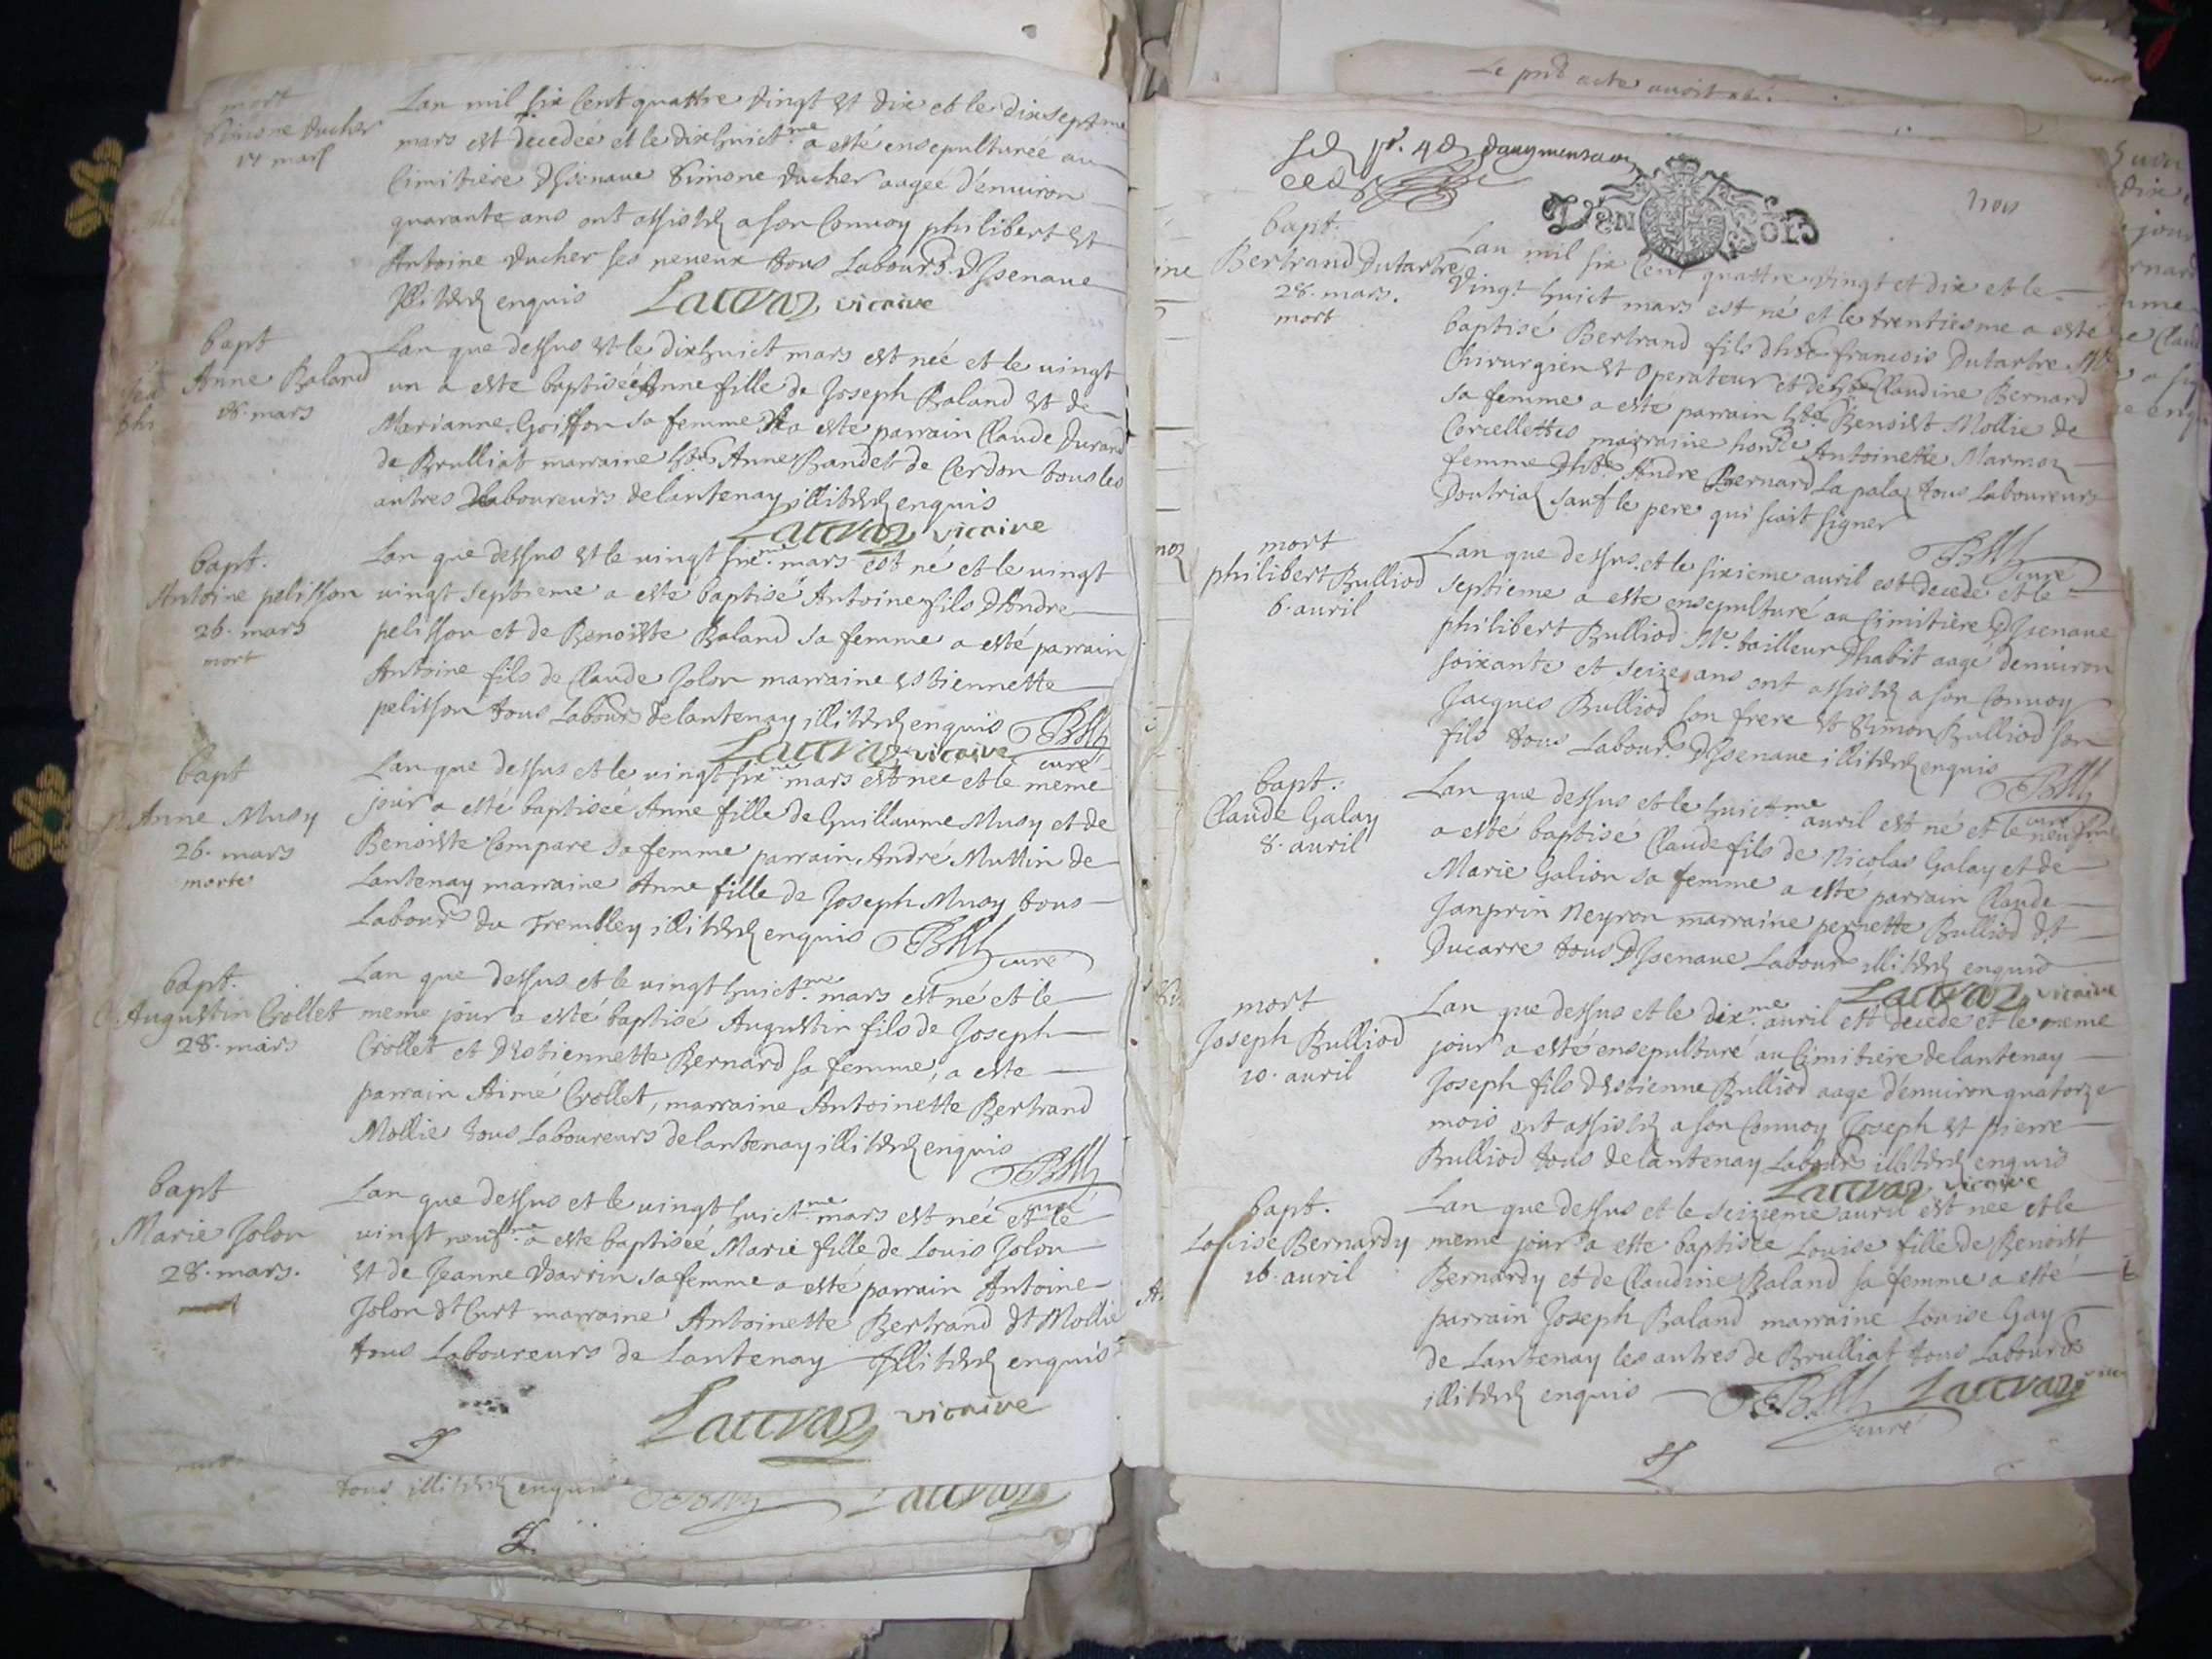 mort
Simone Ducher
17 mars
Lan mil six Cent quattre vingt et dix et le dixsept.me
mars est decedeé et le dixhuict.me a esté ensepulturée au
Cimitiere Disenaue Simone Ducher aageé d'enuiron
quarante ans ont assistés a son Conuoy philibert et
Antoine Ducher ses neueux tous Labours Dissenaue
Illiterés enquis Lacuraz vicaire
bapt
Anne Baland
18. mars
Lan que dessus et le dixhuict mars est née et le uingt
un a este baptisée Anne fille de Joseph Baland et de
Marianne Goiffon sa femme a este parrain Claude Durand
de Brulliat marraine Anne Bandet de Cerdon tous les
autres Laboureurs de lantenay illiterés enquis
Lacuraz vicaire
bapt.
Antoine pelisson
26. mars
mort
Lan que dessus et le uingt six.me mars est né et le uingt
uingt septieme a esté baptisé Antoine fils D'Andre
pelisson et de Benoiste Baland sa femme a esté parrain
Antoine fils de Claude Jolon marraine estiennette
pelisson tous Labours de lantenay illiterés enquis
Lacuraz vicaire curé
bapt
Anne Musy
26. mars
morte
Lan que dessus et le uingt six.me mars est nee et le meme
jour a esté baptiseé Anne fille de Guillaume Musy et de
Benoiste Compare sa femme parrain André Muttin de
Lantenay marraine Anne fille de Joseph Musy tous
Labours du Trembley illiterés enquis
curé
bapt.
Augustin Crollet
28. mars
Lan que dessus et le uingt huict.me mars est né et le
meme jour a esté baptisé Augustin fils de Joseph
Crollet et d'estiennette Bernard sa femme, a este
parrain Aimé Crollet, marraine Antoinette Bertrand
Mollie tous Laboureurs de lantenay illiterés enquis
curé
bapt
Marie Jolon
28. mars.
mort
Lan que dessus et le uingt huict.me mars est neé et le
uingt neuf.me a este baptiseé Marie fille de Louis Jolon
et de Jeanne sa femme a esté parrain Antoine
Jolon dt Curt marraine Antoinette Bertrand dt Mollie
tous Laboureurs de Lantenay Illiterés enquis
Lacuraz vicaire
tous illiterés enquis
Lacuraz
Le pnt acte auoit
Sel pr. 4 d'augmentaon
DEN OIS
bapt.
Bertrand Dutartre
28. mars.
mort
Lan mil six Cent quattre vingt et dix et le
vingt huict mars est né et le trentiesme a esté
baptisé Bertrand fils d'hble francois Dutartre Me
Chirurgien et operateur et de Claudine Bernard
sa femme a esté parrain Benoist Mollie de
Corcellettes marraine honble Antoinette Marmoz
femme Andre Bernard La pala tous Laboureurs
Doutriaz sauf le pere qui scait signer
curé
mort
philibert Bulliod
6. auril
Lan que dessus et le sixieme auril est decedé et le
septieme a este ensepulturé au Cimitiere Dissenaue
philibert Bulliod Me tailleur Dhabit aagé denuiron
soixante et seize ans ont assistés a son Conuoy
Jacques Bulliod son frere et Simon Bulliod son
fils tous Labours Dissenaue illiterés enquis
curé
bapt.
Claude Galay
8. auril
Lan que dessus et le huict.me auril est né et le neuf.me
a esté baptisé Claude fils de Nicolas Galay et de
Marie Galion sa femme a esté parrain Claude
Janprin Neyron marraine pernette Bulliod dt
Ducarre tous Dissenaue Labours illiterés enquis
Lacuraz vicaire
mort
Joseph Bulliod
10. auril
Lan que dessus et le dix.me auril est decedé et le meme
jour a esté ensepulturé au Cimitiere de lantenay
Joseph fils D'estienne Bulliod aage denuiron quatorze
mois ont assistés a son Conuoy Joseph et pierre
Bulliod tous de lantenay Labours illiterés enquis
Lacuraz vicaire
bapt.
Louise Bernardy
16. auril
Lan que dessus et le seizieme auril est née et le
meme jour a este baptisée Louise fille de Benoist
Bernardy et de Claudine Baland sa femme a esté
parrain Joseph Baland marraine Louise Gay
de Lantenay les autres de Brulliat tous Labours
illiterés enquis Lacuraz
curé